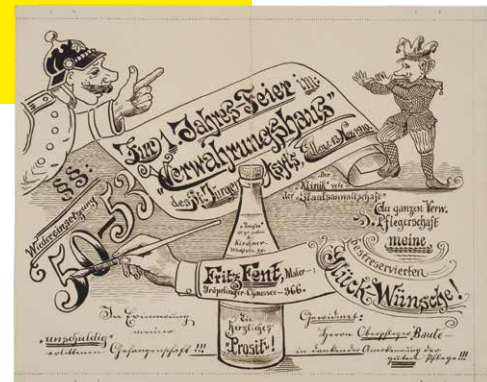 Zur 1 Jahres-Feier im:
"Verwahrungshaus"
des St. Jürgen Asyls, Ellen
§§:
Wiedereinsetzung
50-53
der
"Klinik" wie
der "Staatsanwaltschaft"
der ganzen Verw.
Pflegerschaft
meine
bestreservierten
Glück-Wünsche!
Kirchner
Fritz Fent, Maler
Gröpelinger-Chaussee-366.
Ein
herzliches
"Prosit"!
In Erinnerung
meiner
"unschuldig"
erlittenen Gefangenschaft !!!
Gewidmet:
Herrn Oberpfleger Baute
in dankender Anerkennung der
guten Pflege !!!